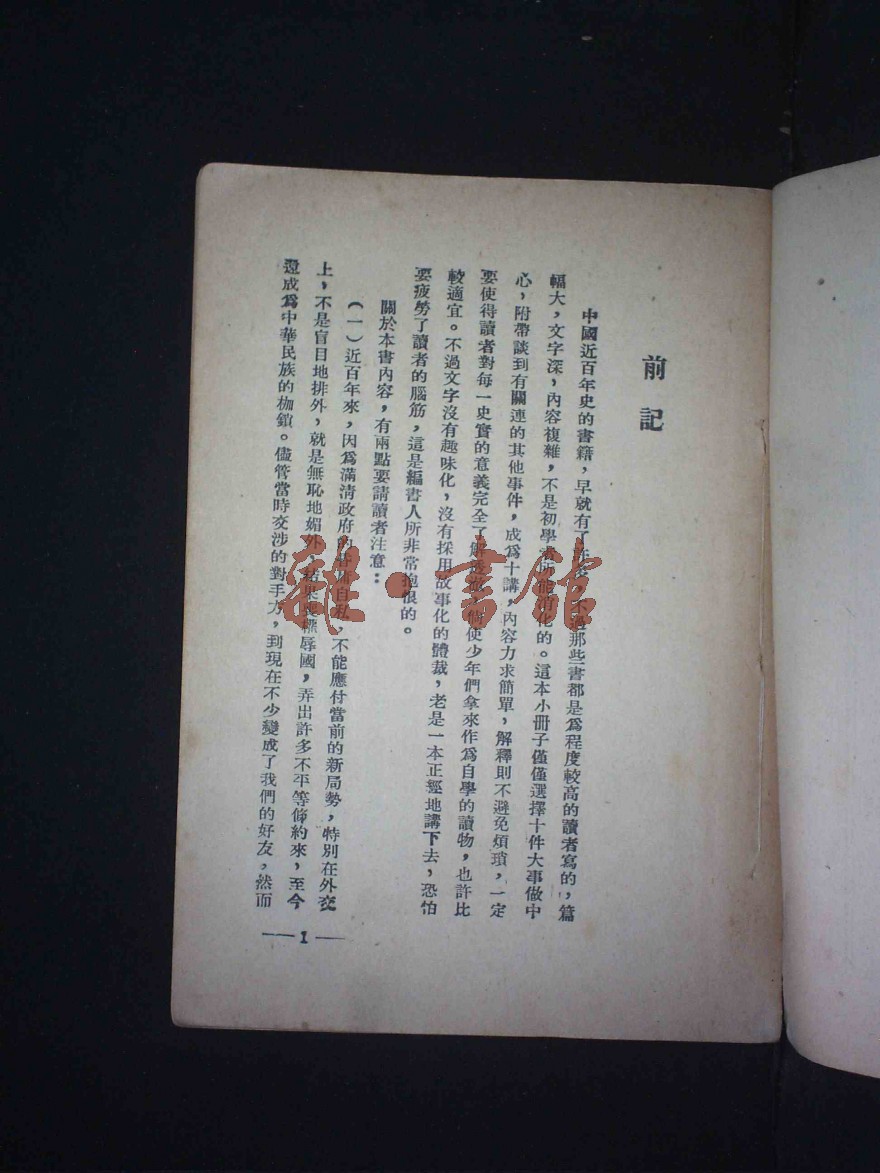 前記
中國近百年史的書籍，早就有了許多，不過那些書都是爲程度較高的讀者寫的，篇
幅大，文字深，內容複雜，不是初學者所能消化的。這本小冊子僅僅選擇十件大事做中
心，附帶談到有關連的其他事件，成爲十講，內容力求簡單，解釋則不避免煩瑣，一定
要使得讀者對每一史實的意義完全了解。倘使少年們拿來作爲自學的讀物，也許比
較適宜。不過文字沒有趣味化，沒有採用故事化的體裁，老是一本正經地講下去，恐怕
要疲勞了讀者的腦筋，這是編書人所非常抱恨的。
關於本書內容，有兩點要請讀者注意：
（一）近百年來，因爲滿清政府的自私，不能應付當前的新局勢，特別在外交
上，不是盲目地排外，就是無恥地媚外，結果喪權辱國，弄出許多不平等條約來，至今
還成爲中華民族的枷鎖。儘管當時交涉的對手方，到現在不少變成了我們的好友，然而
— 1 —
雜·書館